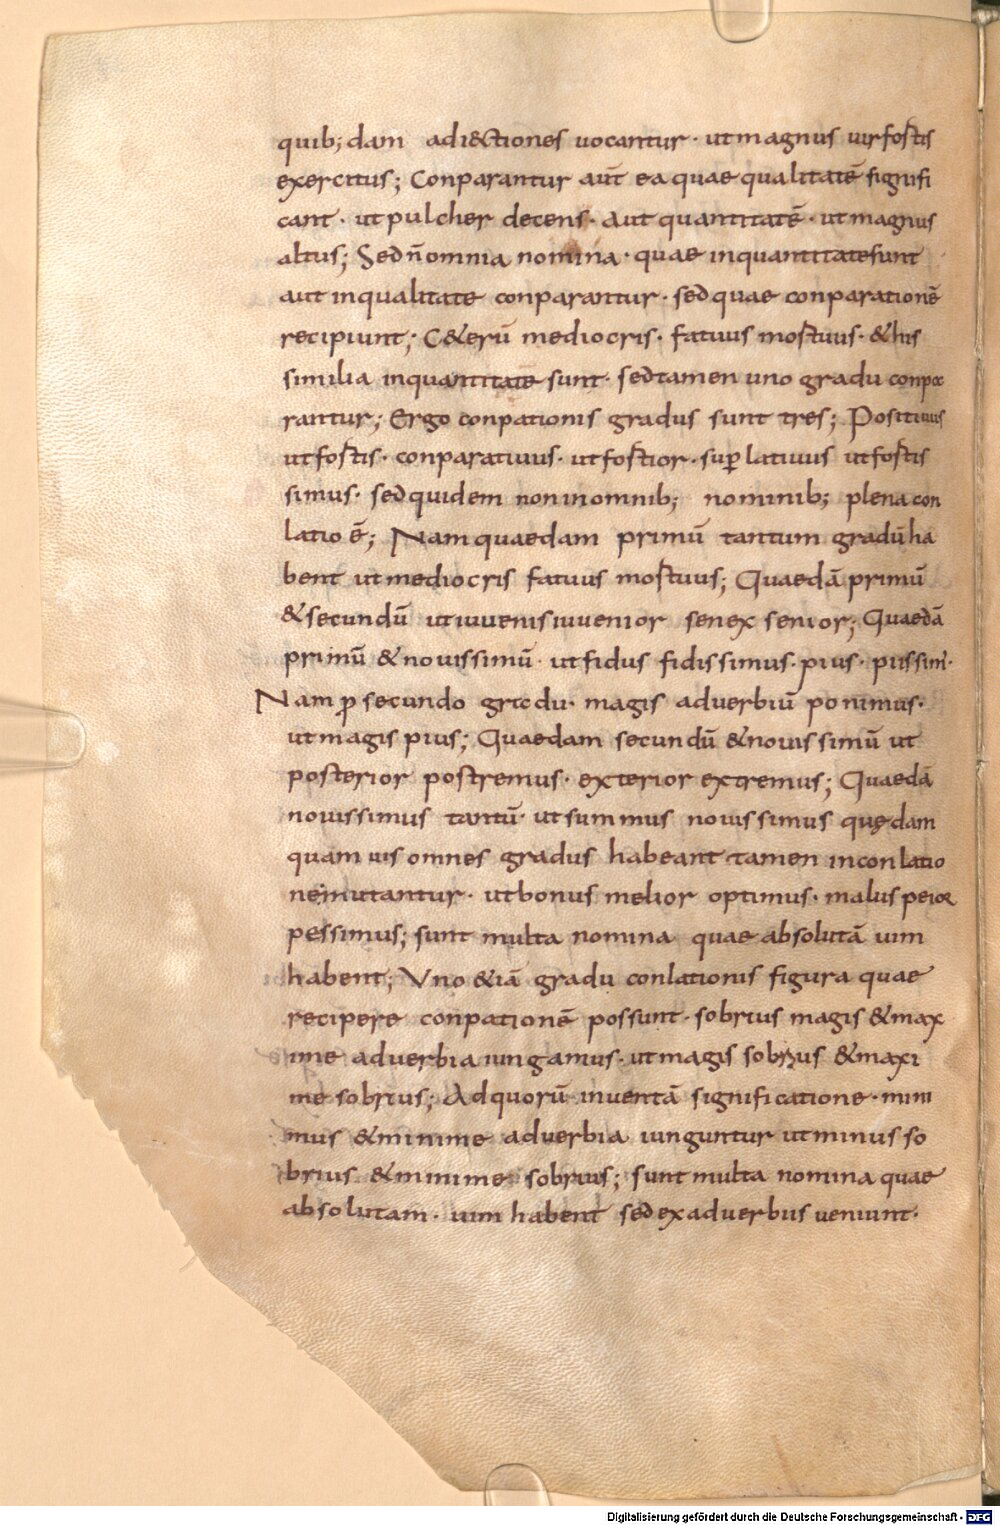 quib; dam adi&ctiones uocantur · ut magnus uir fortis
exercitus; Conparantur aut̄ ea quae qualitatē signifi
cant · ut pulcher decens · Aut quantitatē · ut magnus
altus; Sed n̄ omnia nomina · quae inquantitate sunt
aut inqualitate conparantur · sed quae conparationē
recipiunt; C&erū mediocris · fatuus mortuus · & his
similia inquantitate sunt · sed tamen uno gradu conpa
rantur; Ergo conpationis gradus sunt tres; Positiuus
ut fortis · conparatiuus · ut fortior · sup̄latiuus ut fortis
simus · sed quidem non inomnib; nominib; plena con
latio ē; Nam quaedam primū tantum gradū ha
bent ut mediocris fatuus mortuus; Quaedā primū
& secundū ut iuuenis iuuenior senex senior; Quaedā
primū & nouissimū · ut fidus fidissimus · pius · piissim̄ ·
Nam ꝓ secundo gradu · magis aduerbiū ponimus ·
ut magis pius; Quaedam secundū & nouissimū ut
posterior postremus · exterior extremus; Quaedā
nouissimus tantū · ut summus nouissimus quędam
quam uis omnes gradus habeant tamen inconlatio
ne mutantur · ut bonus melior optimus · malus peior
pessimus; sunt multa nomina quae absolutā uim
habent; Vno &iā gradu conlationis figura quae
recipere conpationē possunt · sobrius magis & max
ime aduerbia iungamus · ut magis sobrius & maxi
me sobrius; Ad quorū inuentā significatione · mini
mus & minime aduerbia iunguntur ut minus so
brius & minime sobrius; sunt multa nomina quae
absolutam · uim habent sed ex aduerbiis ueniunt ·
Digitalisierung gefördert durch die Deutsche Forschungsgemeinschaft - DFG